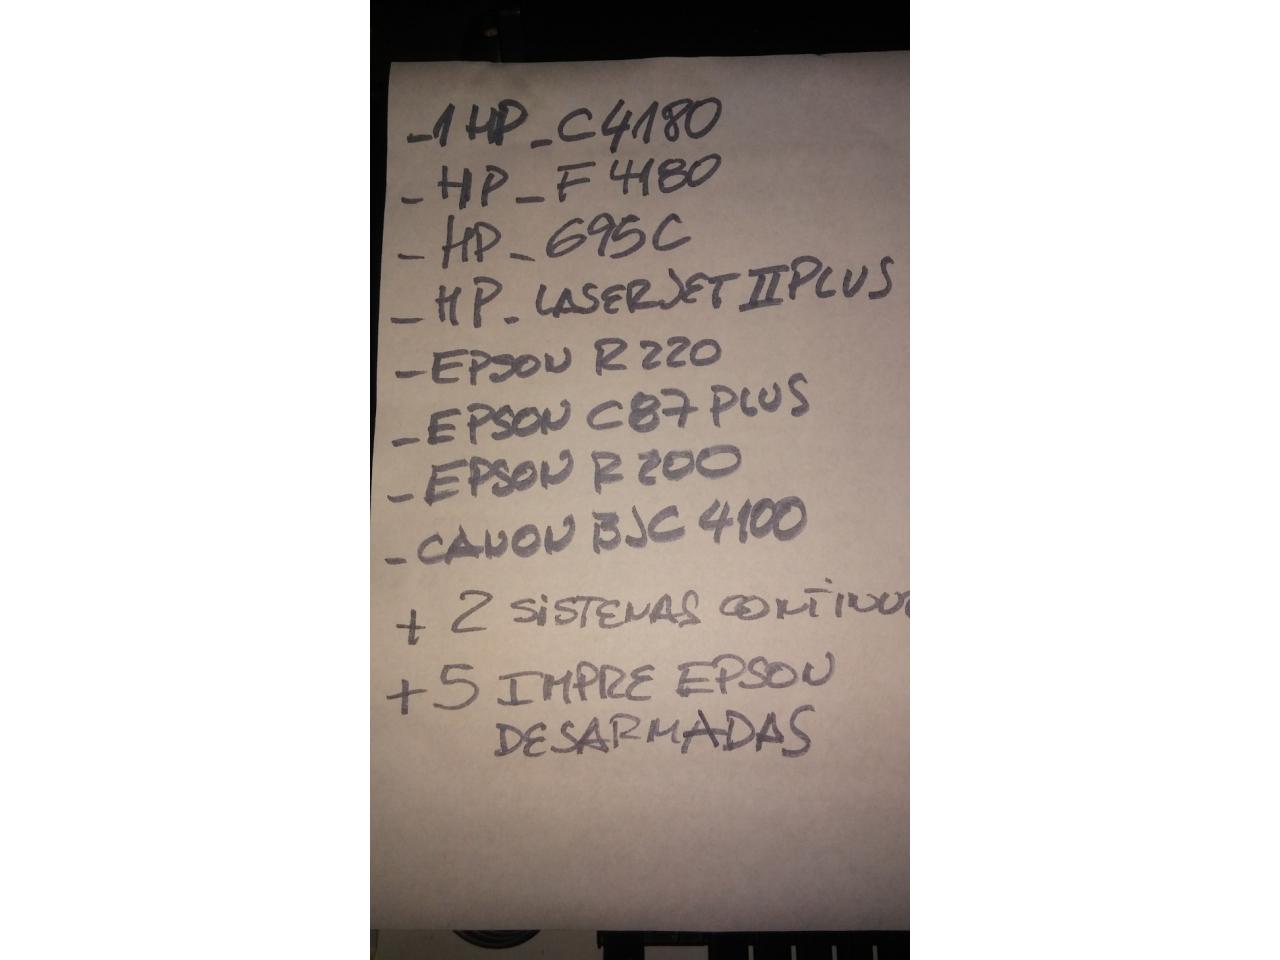 -1 HP - C4180
- HP - F4180
- HP - 695C
- HP - LASERJET II PLUS
- EPSON R220
- EPSON C87 PLUS
- EPSON R200
- CANON BJC 4100
+ 2 SISTEMAS CONTINUO
+ 5 IMPRE EPSON
DESARMADAS